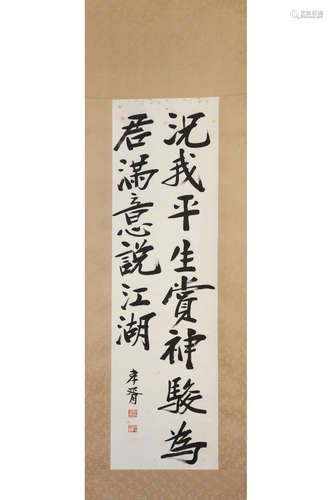 況我平生賞神駿為
君滿意說江湖
孝胥